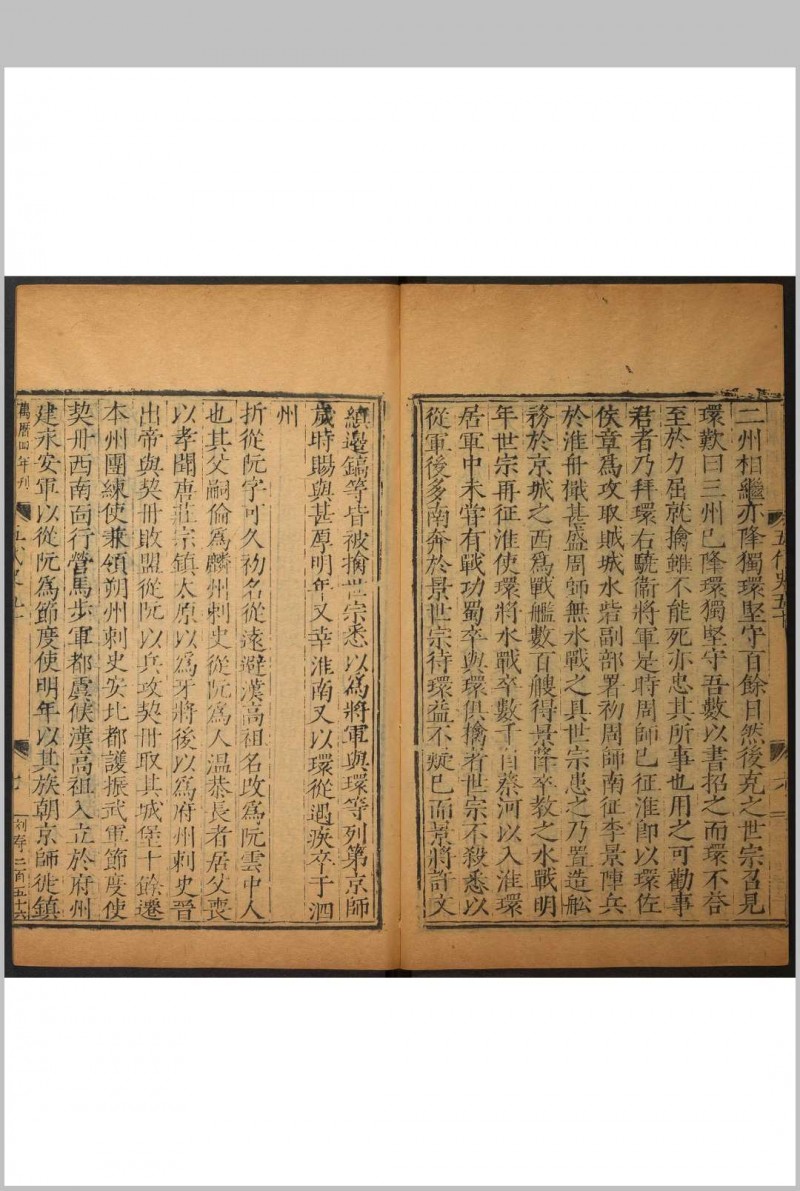 二州相繼亦降獨環堅守百餘日然後克之世宗召見
環歎曰三州已降環獨堅守吾數以書招之而環不荅
至於力屈就擒雖不能死亦忠其所事也用之可勸事
君者乃拜環右驍衞將軍是時周師巳征淮卽以環佐
侯章爲攻取賊城水砦副部署初周師南征李景陳兵
於淮舟檝甚盛周師無水戰之具世宗患之乃置造船
務於京城之西爲戰艦數百艘得景降卒教之水戰明
年世宗再征淮使環將水戰卒數千自蔡河以入淮環
居軍中未甞有戰功蜀卒與環俱擒者世宗不殺悉以
從軍後多南奔於景世宗待環益不疑巳而景將許文
縝邊鎬等皆被擒世宗悉以爲將軍與環等列第京師
歲時賜與甚厚明年又幸淮南又以環從遇疾卒于泗
州
折從阮字可久初名從遠避漢高祖名改爲阮雲中人
也其父嗣倫爲麟州刺史從阮爲人温恭長者居父喪
以孝聞唐莊宗鎭太原以爲牙將後以爲府州刺史晉
出帝與契丹敗盟從阮以兵攻契丹取其城堡十餘遷
本州團練使兼領朔州刺史安北都護振武軍節度使
契丹西南面行營馬步軍都虞候漢高祖入立於府州
建永安軍以從阮爲節度使明年以其族朝京師徙鎭
萬曆四年刊
五代史五十
刘存二百五十六